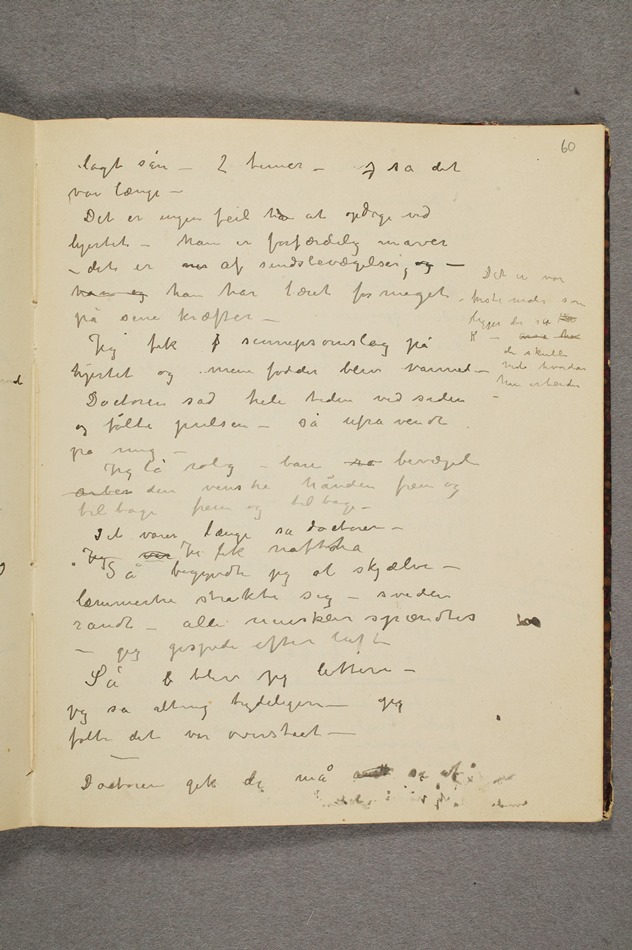 60
lagt sån – 2 timer – sa det
var længe –
Det er ingen feil at opdage ved
hjertet – han er forfærdelig nervøs
– det er af sindsbevægelser, og –
han og han har læst for meget
på sine kræfter –
Jeg fik sennepsomslag på
hjertet og mine fødder blev varmed –
Doctoren sad hele tiden ved siden
og følte pulsen – så ufravendt
på mig –
Jeg lå rolig – bare bevæget
den venstre hånden frem og
tilbage frem og tilbage –
Det varer længe sa doctoren –
Jeg Jeg fik naftha
Så begyndte jeg at skjælve –
lemmerne strakte sig – sveden
randt – alle muskler spændtes
– jeg gispede efter luft
Så blev jeg lettere –
jeg sa alting tydeligere – jeg
følte det var overstået –
Doctoren gik de må
Det er
som
bygger
de skulle
vide hvordan
han arbeider